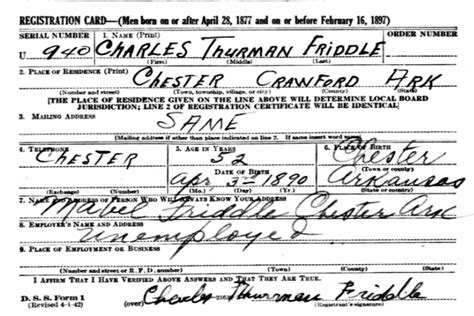 REGISTRATION CARD—(Men born on or after April 28, 1877 and on or before February 16, 1897)
SERIAL NUMBER 1. NAME (Print) ORDER NUMBER
U 940 CHARLES THURMAN FRIDDLE
(First) (Middle) (Last)
2. PLACE OF RESIDENCE (Print)
CHESTER CRAWFORD ARK
(Number and street) (Town, township, village, or city) (County) (State)
[THE PLACE OF RESIDENCE GIVEN ON THE LINE ABOVE WILL DETERMINE LOCAL BOARD
JURISDICTION; LINE 2 OF REGISTRATION CERTIFICATE WILL BE IDENTICAL]
3. MAILING ADDRESS
SAME
[Mailing address if other than place indicated on line 2. If same insert word same]
4. TELEPHONE 5. AGE IN YEARS 6. PLACE OF BIRTH
CHESTER 52 Chester
DATE OF BIRTH (Town or county)
Apr 3 1890 Arkansas
(Exchange) (Number) (Mo.) (Day) (Yr.) (State or country)
7. NAME AND ADDRESS OF PERSON WHO WILL ALWAYS KNOW YOUR ADDRESS
Mabel Friddle Chester Ark
8. EMPLOYER'S NAME AND ADDRESS
Unemployed
9. PLACE OF EMPLOYMENT OR BUSINESS
(Number and street or R. F. D. number) (Town) (County) (State)
I AFFIRM THAT I HAVE VERIFIED ABOVE ANSWERS AND THAT THEY ARE TRUE.
D. S. S. Form 1
(Revised 4-1-42) (over) Charles Thurman Friddle
(Registrant's signature)